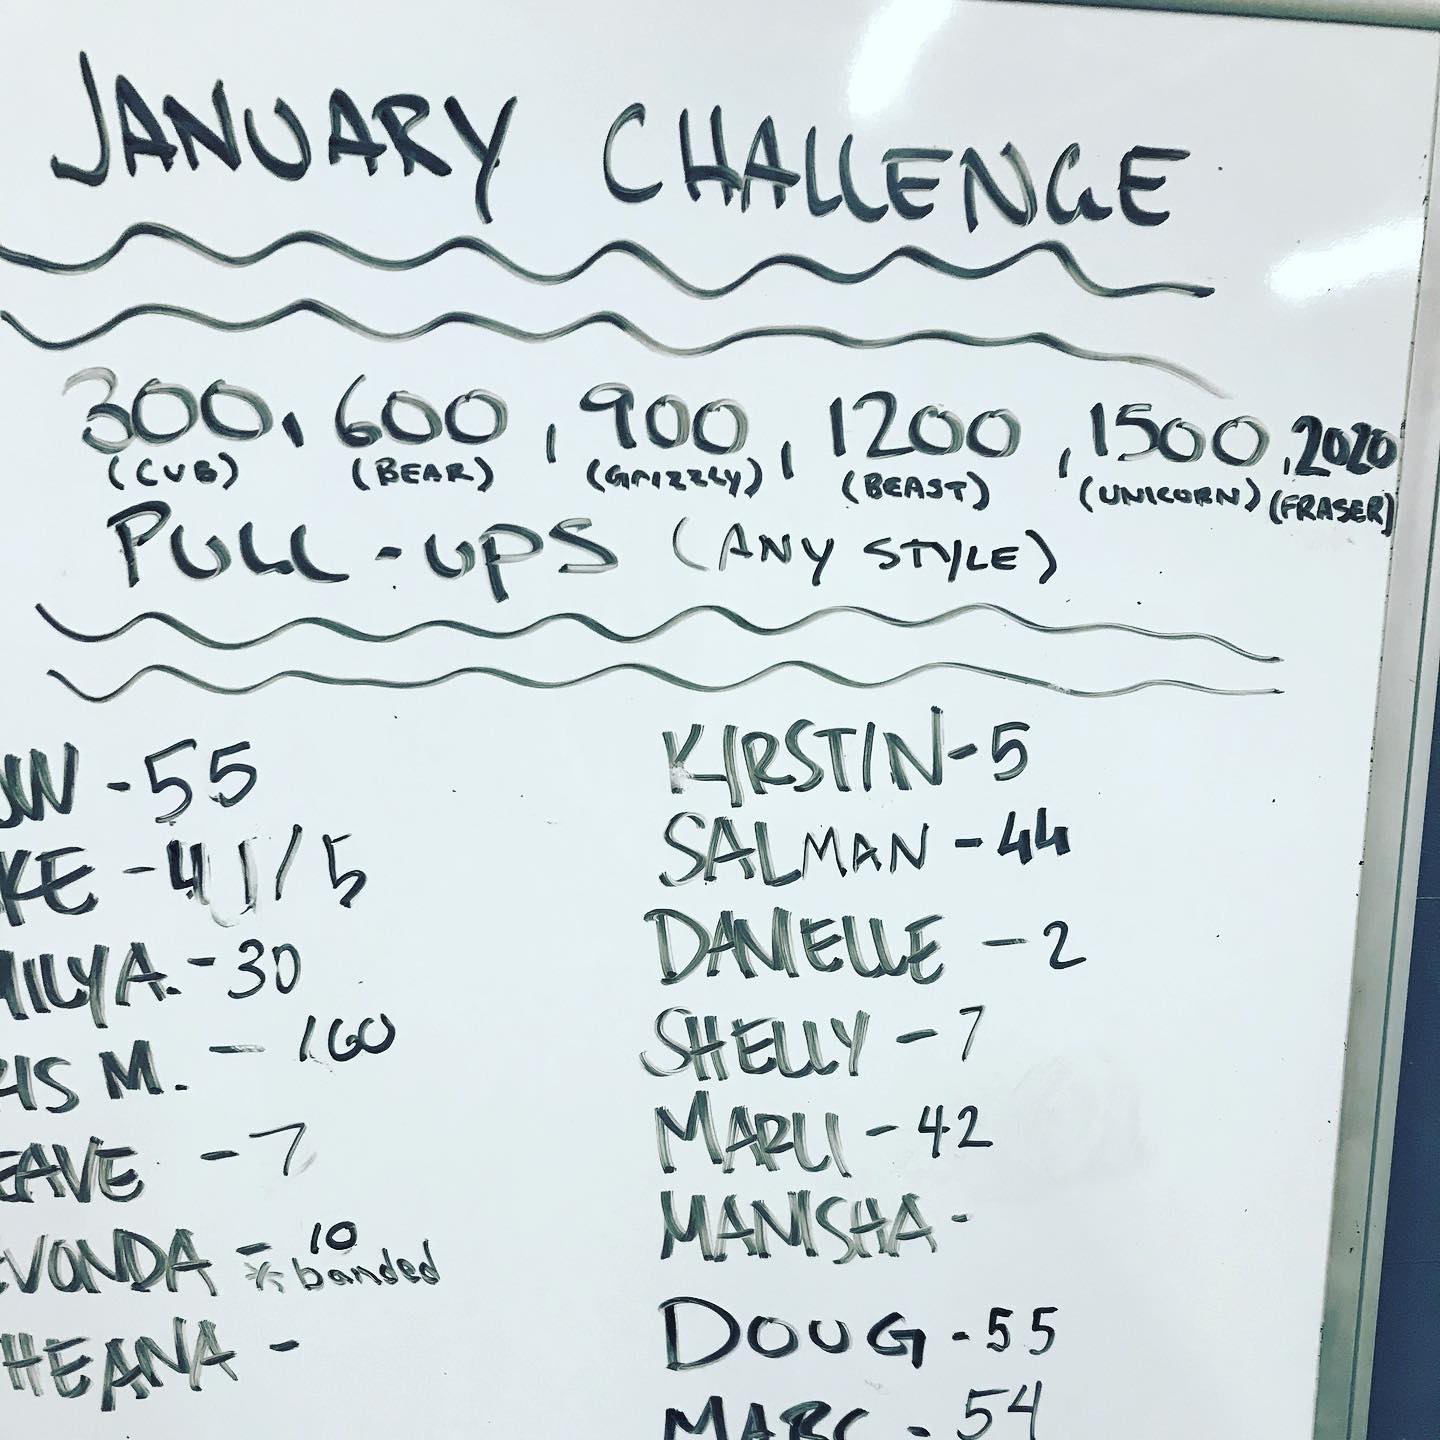 JANUARY CHALLENGE
300, 600, 900, 1200, 1500, 2020
(CUB) (BEAR) (GRIZZLY) (BEAST) (UNICORN) (FRASER)
PULL-UPS (ANY STYLE)
- 55
KE - / 5
ILY A. - 30
IS M. - 160
EAVE - 7
EVONDA - 10
* banded
HEANA -
KIRSTIN - 5
SALMAN - 44
DANIELLE - 2
SHELLY - 7
MARLI - 42
MANISHA -
DOUG - 55
MARC - 54